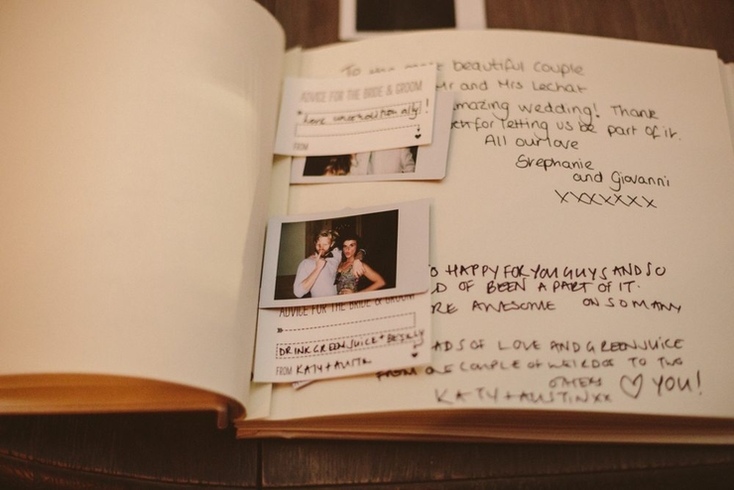 beautiful couple
Mr and Mrs Lechat
amazing wedding! Thank
for letting us be part of it.
All our love
Stephanie
and Giovanni
xxxxxxx
ADVICE FOR THE BRIDE & GROOM
Love unconditionally!
FROM
HAPPY FOR YOU GUYS AND SO
OF BEEN A PART OF IT.
AWESOME ON SO MANY
LOVE AND GREEN JUICE
FROM ONE COUPLE OF WEIRDOS TO TWO
OTHERS ♡ YOU!
KATY + AUSTIN xx
ADVICE FOR THE BRIDE & GROOM
DRINK GREEN JUICE + BE SILLY
FROM KATY + AUSTIN